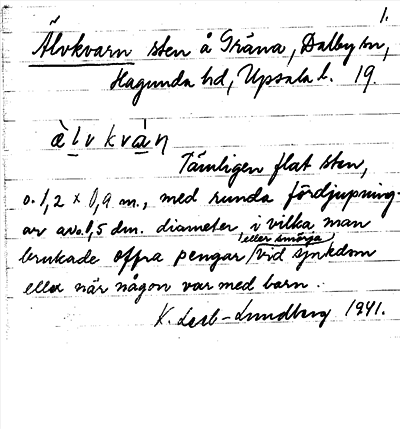 1.
Älvkvarn sten å Gräna, Dalby sn,
Hagunda hd, Upsala l. 19
ä̀lvkvàṇ
Tämligen flat sten,
o. 1,2 x 0,9 m., med runda fördjupning-
ar av o. 1,5 dm. diameter, i vilka man
eller smörja
brukade offra pengar vid sjukdom
eller när någon var med barn.
K. Leib-Lundberg 1941.